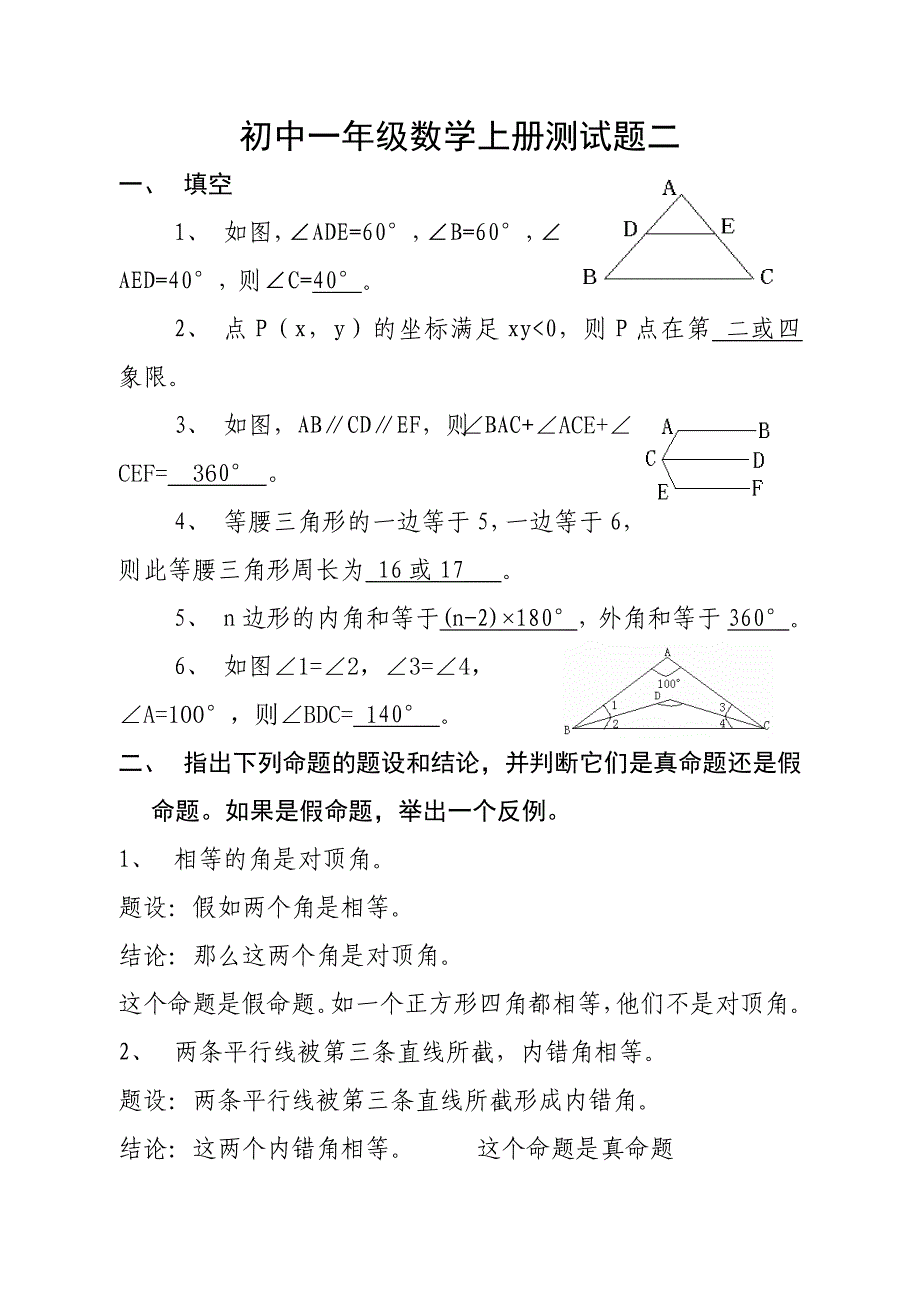 初中一年级数学上册测试题二
一、 填空
1、 如图,∠ADE=60°,∠B=60°,∠
AED=40°,则∠C=40°。
A
D
E
B
C
2、 点P(x,y)的坐标满足xy<0,则P点在第 二或四
象限。
3、 如图,AB∥CD∥EF,则∠BAC+∠ACE+∠
CEF= 360° 。
A
B
C
D
E
F
4、 等腰三角形的一边等于5,一边等于6,
则此等腰三角形周长为 16或17 。
5、 n边形的内角和等于(n-2)×180° ,外角和等于 360°。
6、 如图∠1=∠2,∠3=∠4,
∠A=100°,则∠BDC= 140° 。
A
100°
D
1
2
3
4
B
C
二、 指出下列命题的题设和结论,并判断它们是真命题还是假
命题。如果是假命题,举出一个反例。
1、 相等的角是对顶角。
题设:假如两个角是相等。
结论:那么这两个角是对顶角。
这个命题是假命题。如一个正方形四角都相等,他们不是对顶角。
2、 两条平行线被第三条直线所截,内错角相等。
题设:两条平行线被第三条直线所截形成内错角。
结论:这两个内错角相等。 这个命题是真命题